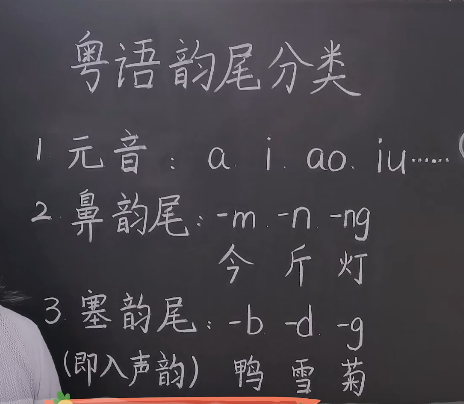 粤语韵尾分类
1 元音：a. i. ao. iu……
2. 鼻韵尾：-m. -n. -ng
今 斤 灯
3. 塞韵尾：-b -d. -g
(即入声韵) 鸭 雪 菊